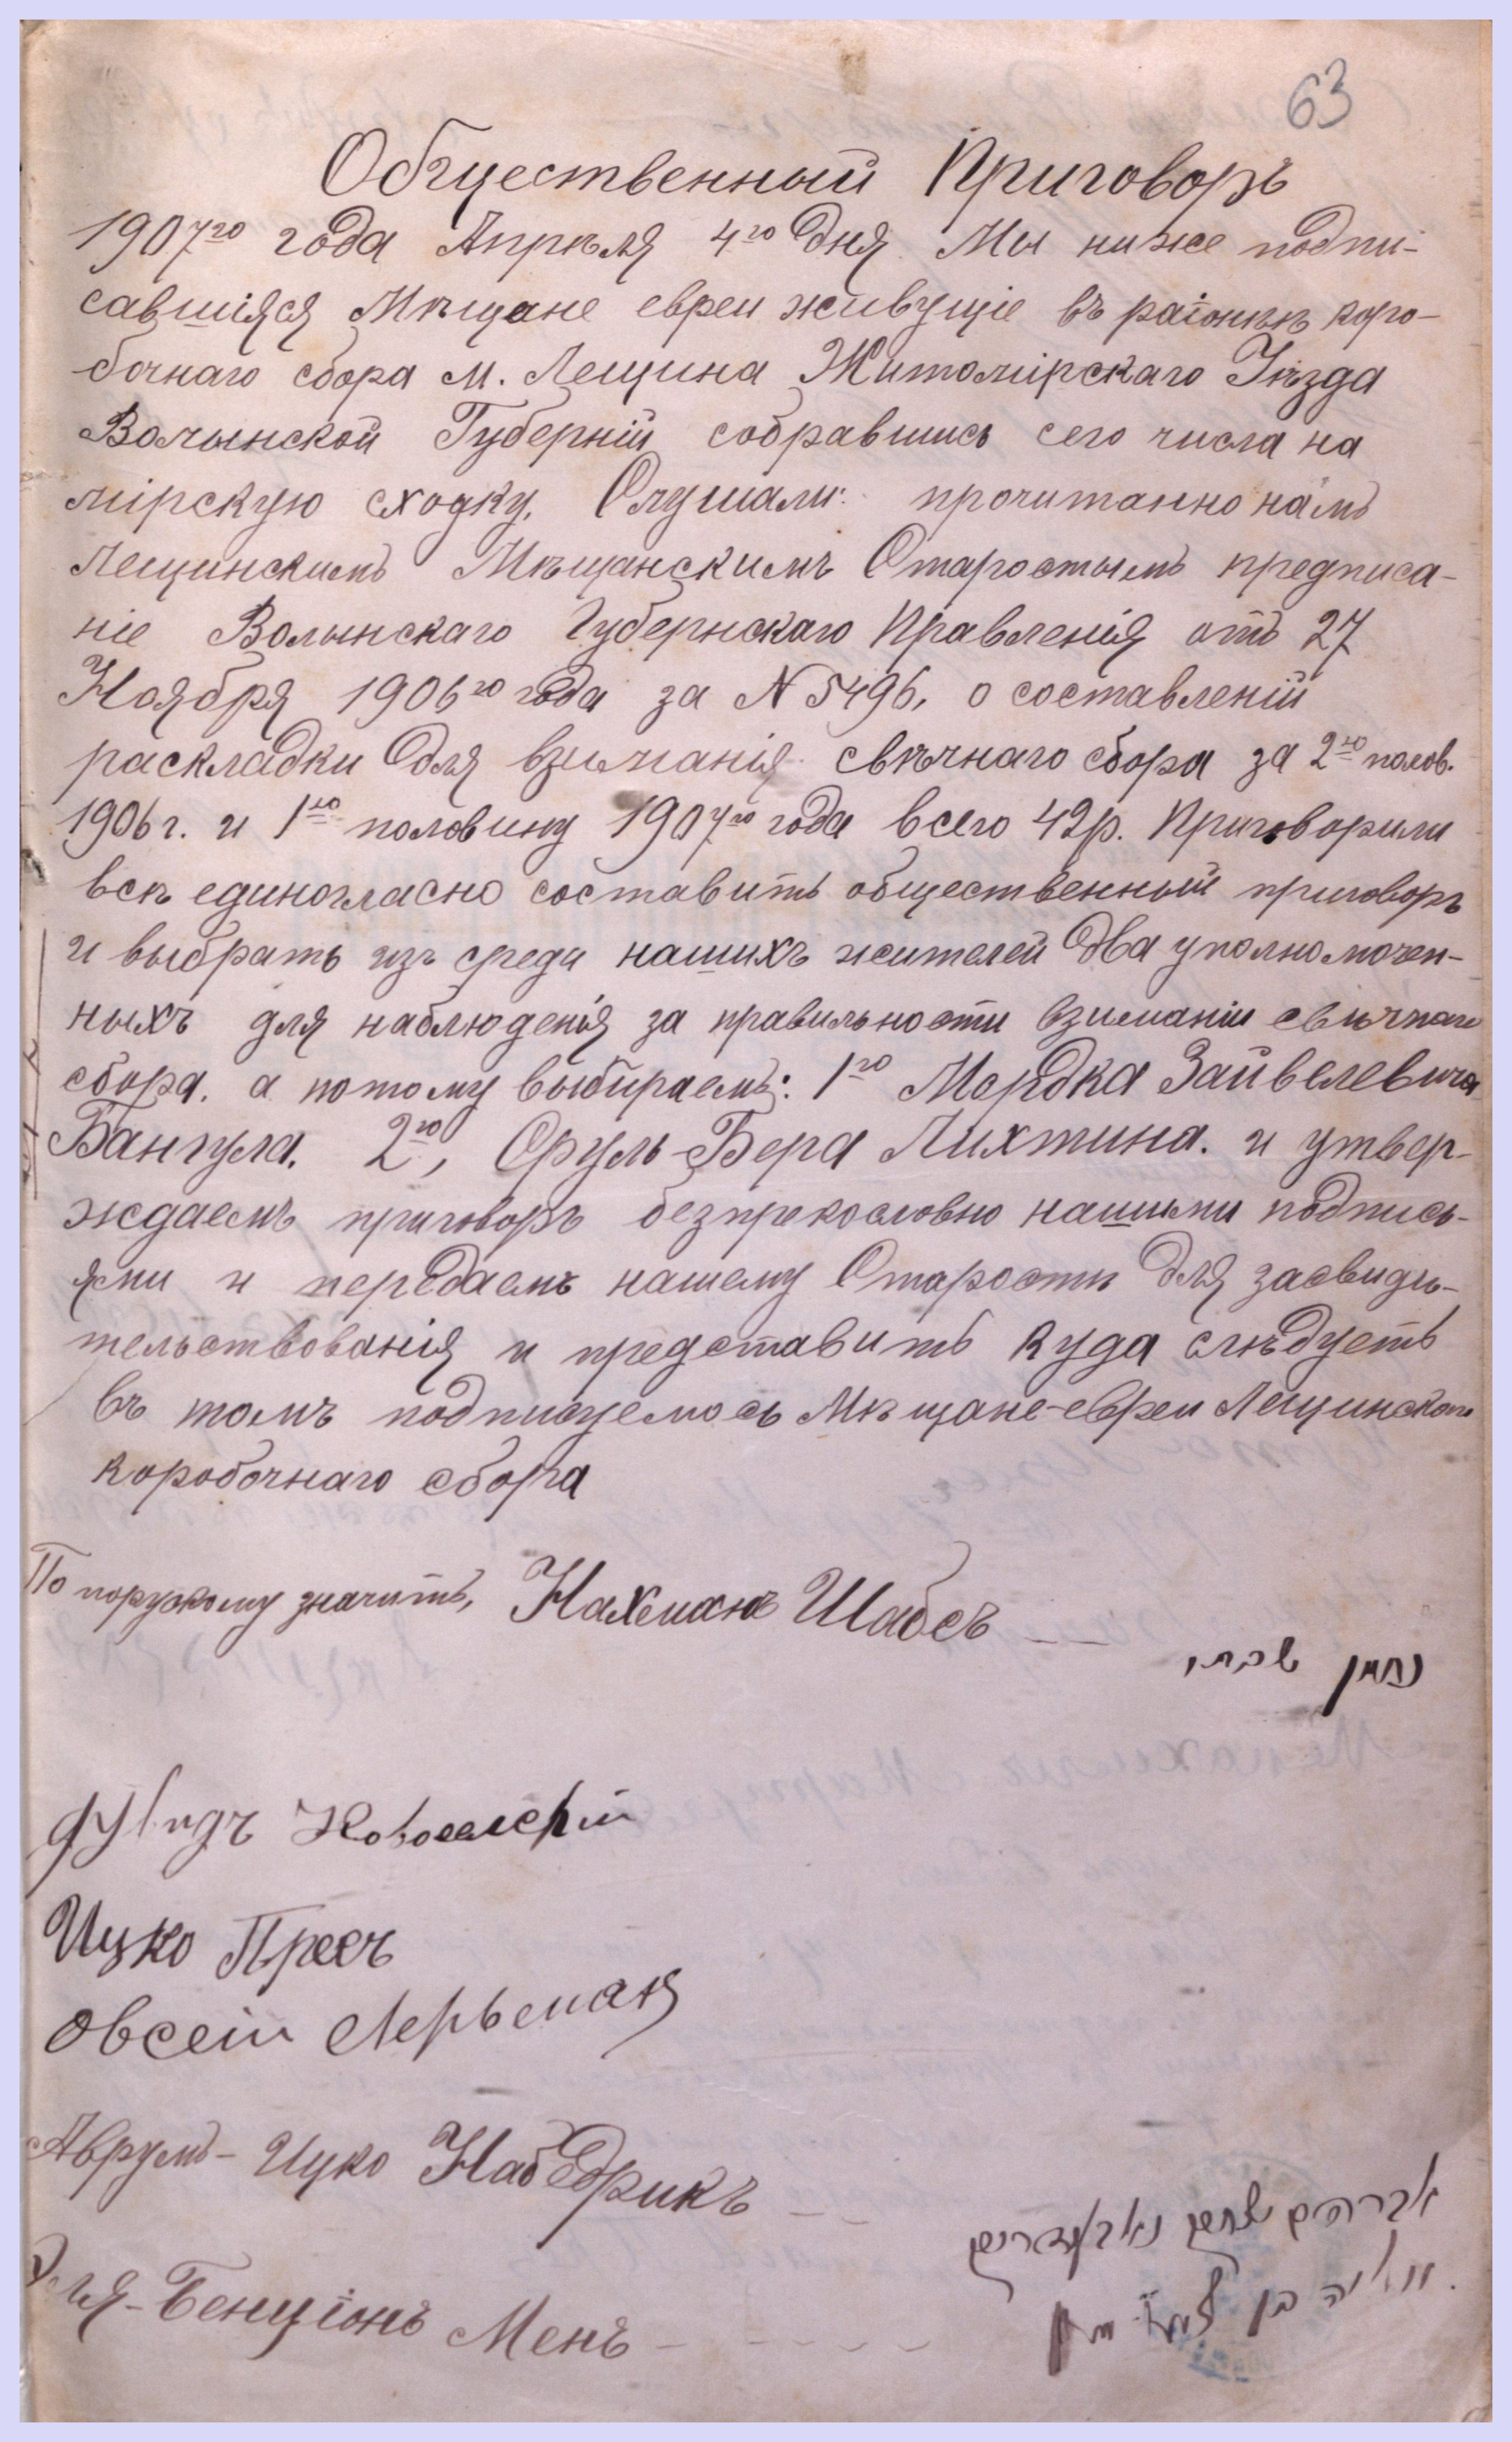 63
Общественный Приговоръ
1907го года Апрѣля 4го дня Мы ниже подпи-
савшіяся Мѣщане евреи живущіе въ раіонѣ коро-
бочнаго сбора м. Лещина Житомірскаго Уѣзда
Волынской Губерній собравшись сего числа на
мірскую сходку, Слушали: прочитанно намъ
Лещинскимъ Мѣщанскимъ Старостымъ предписа-
ніе Волынскаго Губернскаго Правленія отъ 27
Ноября 1906го года за N 5496, о составленій
раскладки для взиманія свѣчнаго сбора за 2ю полов.
1906 г. и 1ю половину 1907го года всего 42 р. Приговорили
всѣ единогласно составить общественный приговоръ
и выбрать изъ среды нашихъ жителей два уполномочен-
ныхъ для наблюденія за правильности взиманіи свѣчнаго
сбора. а потому выбираемъ: 1го Мордка Зайвелевича
Бангула. 2го, Сруль-Бера Лихтина. и утвер-
ждаемъ приговоръ безпрекословно нашими подпись-
ями и передаемъ нашему Старостѣ для засвидѣ-
тельствованія и представить куда слѣдуетъ
въ томъ подписуемось Мѣщане-евреи Лещинскаго
коробочнаго сбора
По порускому значитъ, Нахманъ Шабсъ
נחמן שבתי
Новоселскій
Ицко Пресъ
Овсей Лерьман
Аврумъ-Ицко Набедрикъ
אברהם יצחק נאבעדריק
Эля-Бенціонъ Менъ